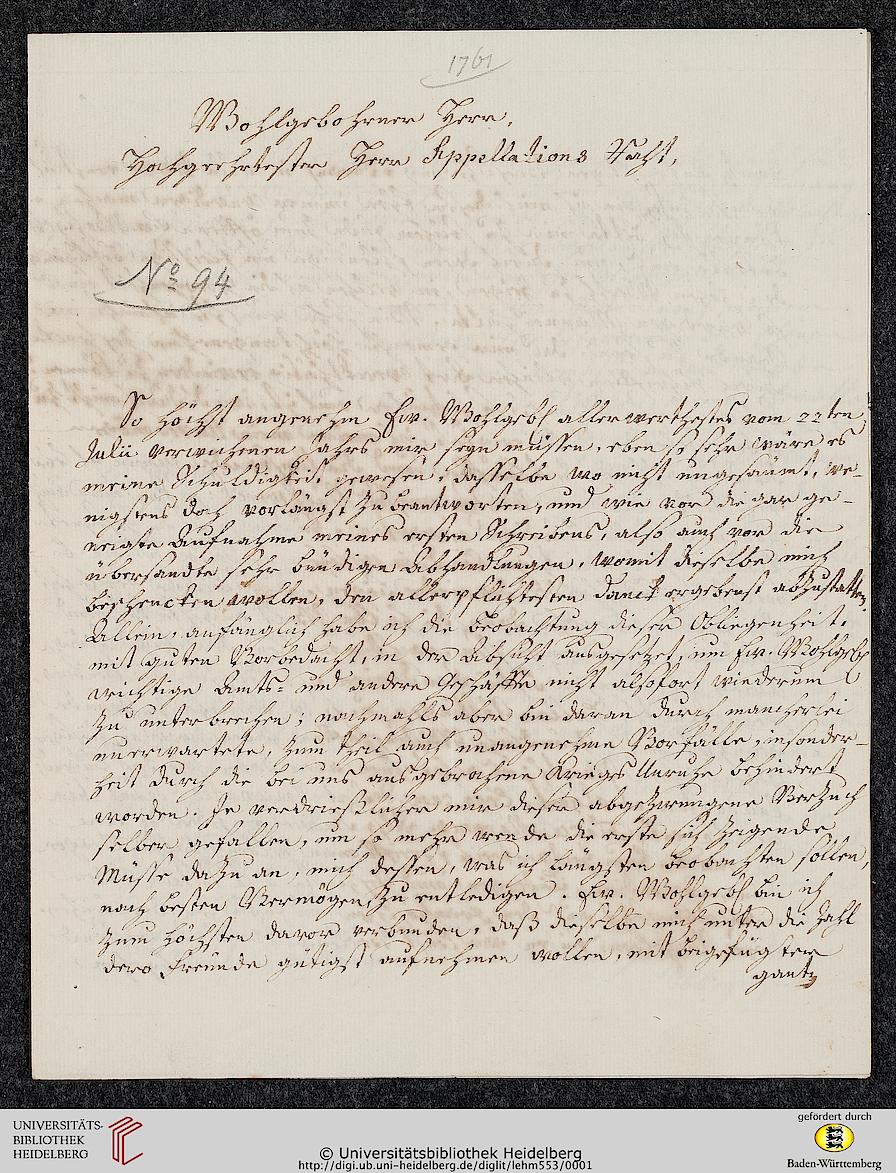 1761
Wohlgebohrner Herr,
Hochgeehrtester Herr Appellations Raht,
No 94
So höchst angenehm Ew. Wohlgeb. allerwerthestes vom 22ten
Julii verwichenen Jahrs mir seyn müssen, eben so sehr wäre es
meine Schuldigkeit gewesen, dasselbe wo nicht ungesäumt, we-
nigstens doch vorlängst zu beantworten, und wie vor die gar ge-
neigte Aufnahme meines ersten Schreibens, also auch vor die
übersandte sehr bündigen Abhandlungen, womit dieselbe mich
beschencken wollen, den allerpflichtesten Danck ergebenst abzustatten.
Allein, anfänglich habe ich die Beobachtung dieser Obliegenheit,
mit guten Vorbedacht, in der Absicht ausgesetzet, um Ew. Wohlgeb.
wichtige Amts- und andere Geschäffte nicht alsofort wiederum
zu unterbrechen; nachmahls aber bin daran durch mancherlei
unerwartete, zum theil auch unangenehme Vorfälle, insonder-
heit durch die bei uns ausgebrochene Krieges Unruhe behindert
worden. Je verdrießlicher mir dieser abgezwungene Verzuch
selber gefallen, um so mehr wende die erste sich zeigende
Müsse dazu an, mich dessen, was ich längsten beobachten sollen,
nach besten Vermögen, zu entledigen. Ew. Wohlgeb. bin ich
zum höchsten davor verbunden, daß dieselbe mich unter die Zahl
dero Freunde gütigst aufnehmen wollen, mit beigefügter
gantz
UNIVERSITÄTS-
BIBLIOTHEK
HEIDELBERG
© Universitätsbibliothek Heidelberg
http://digi.ub.uni-heidelberg.de/diglit/lehm553/0001
gefördert durch
Baden-Württemberg